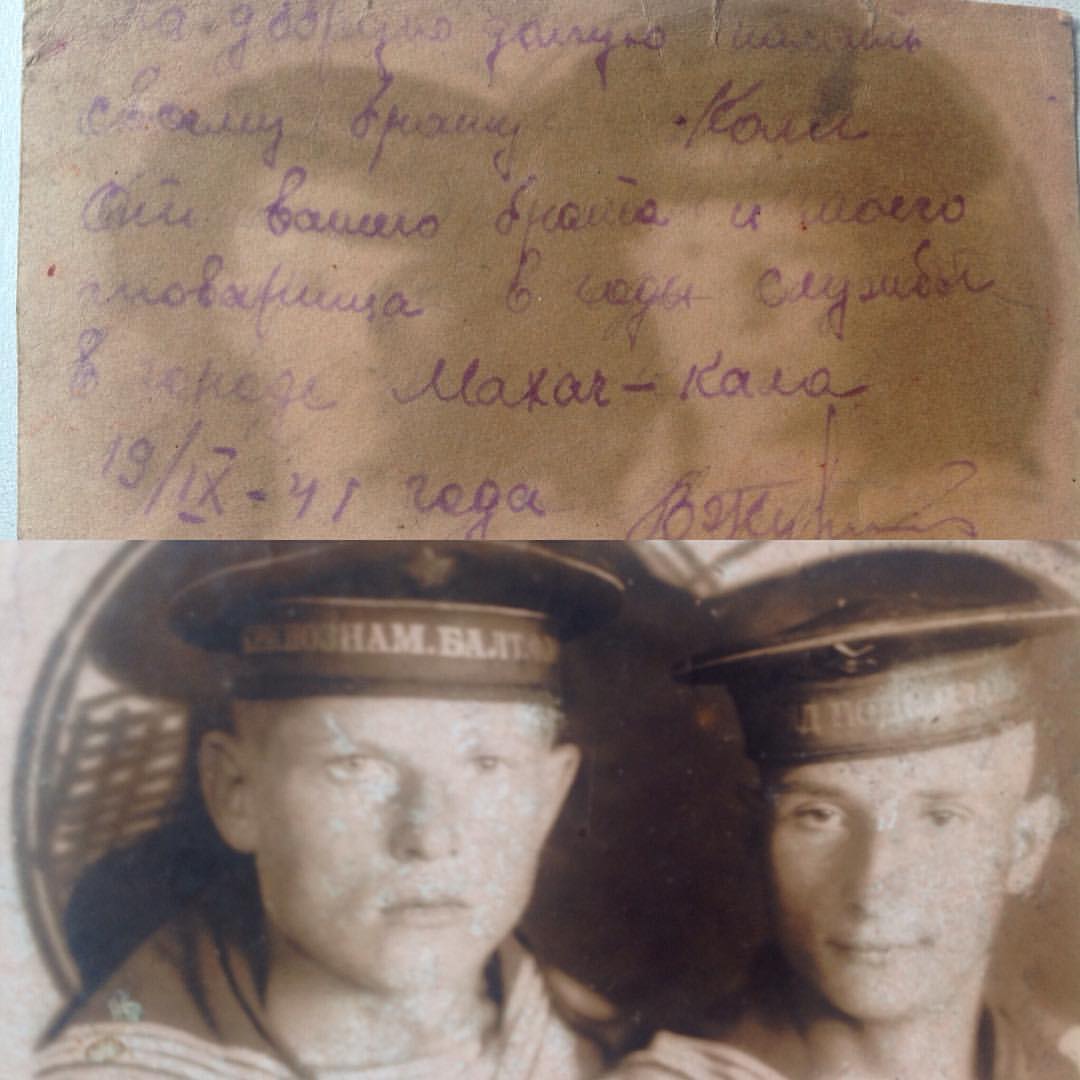 На добрую долгую память
своему брату Коли
От вашего брата и моего
товарища в годы службы
в городе Махач-Кала
19/IX-41 года
КРАСНОЗНАМ. БАЛТ